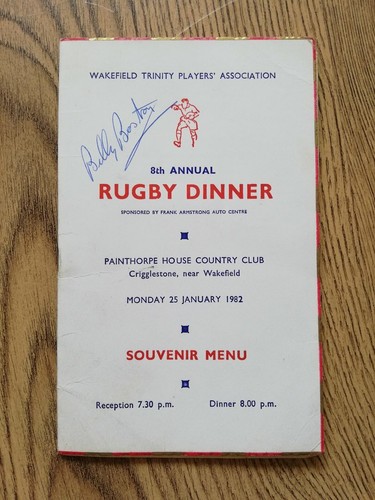 WAKEFIELD TRINITY PLAYERS' ASSOCIATION
Billy Boston
8th ANNUAL
RUGBY DINNER
SPONSORED BY FRANK ARMSTRONG AUTO CENTRE
PAINTHORPE HOUSE COUNTRY CLUB
Crigglestone, near Wakefield
MONDAY 25 JANUARY 1982
SOUVENIR MENU
Reception 7.30 p.m. Dinner 8.00 p.m.